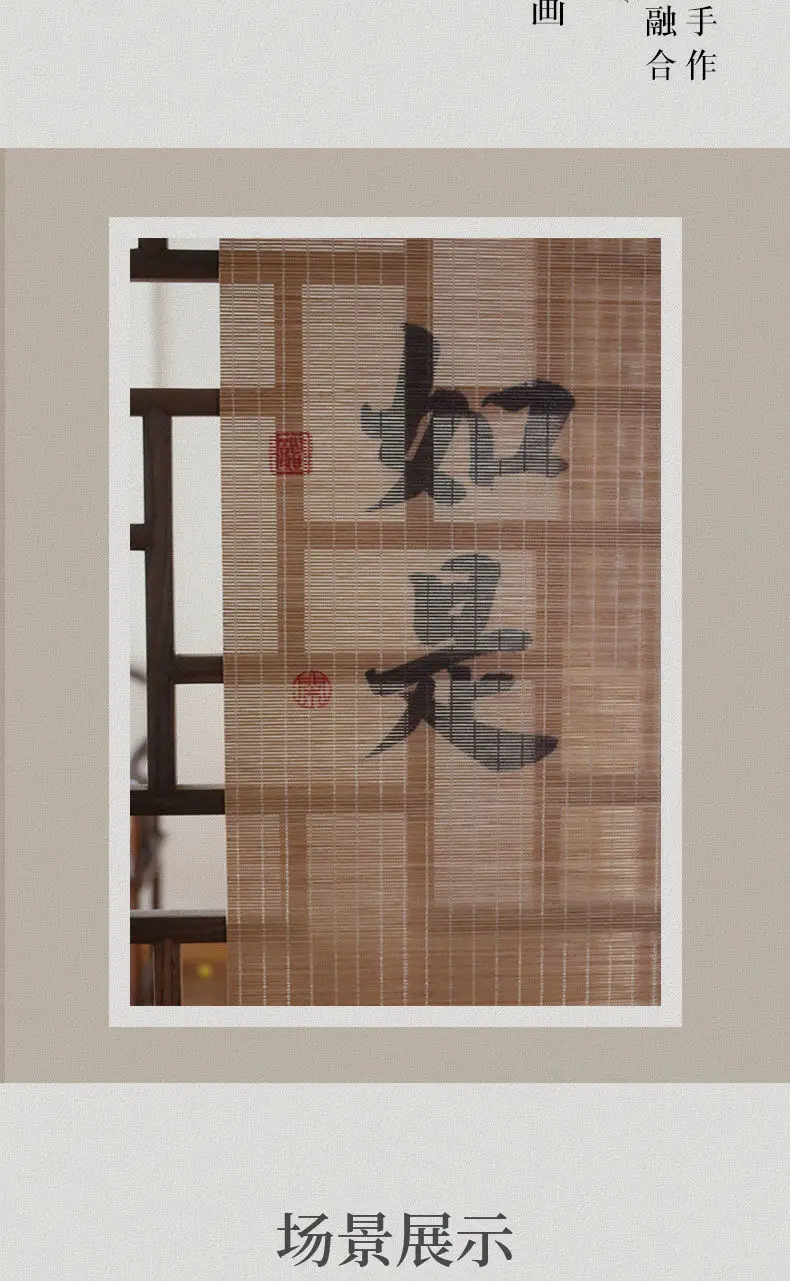 手作
融合
画
如是
场景展示